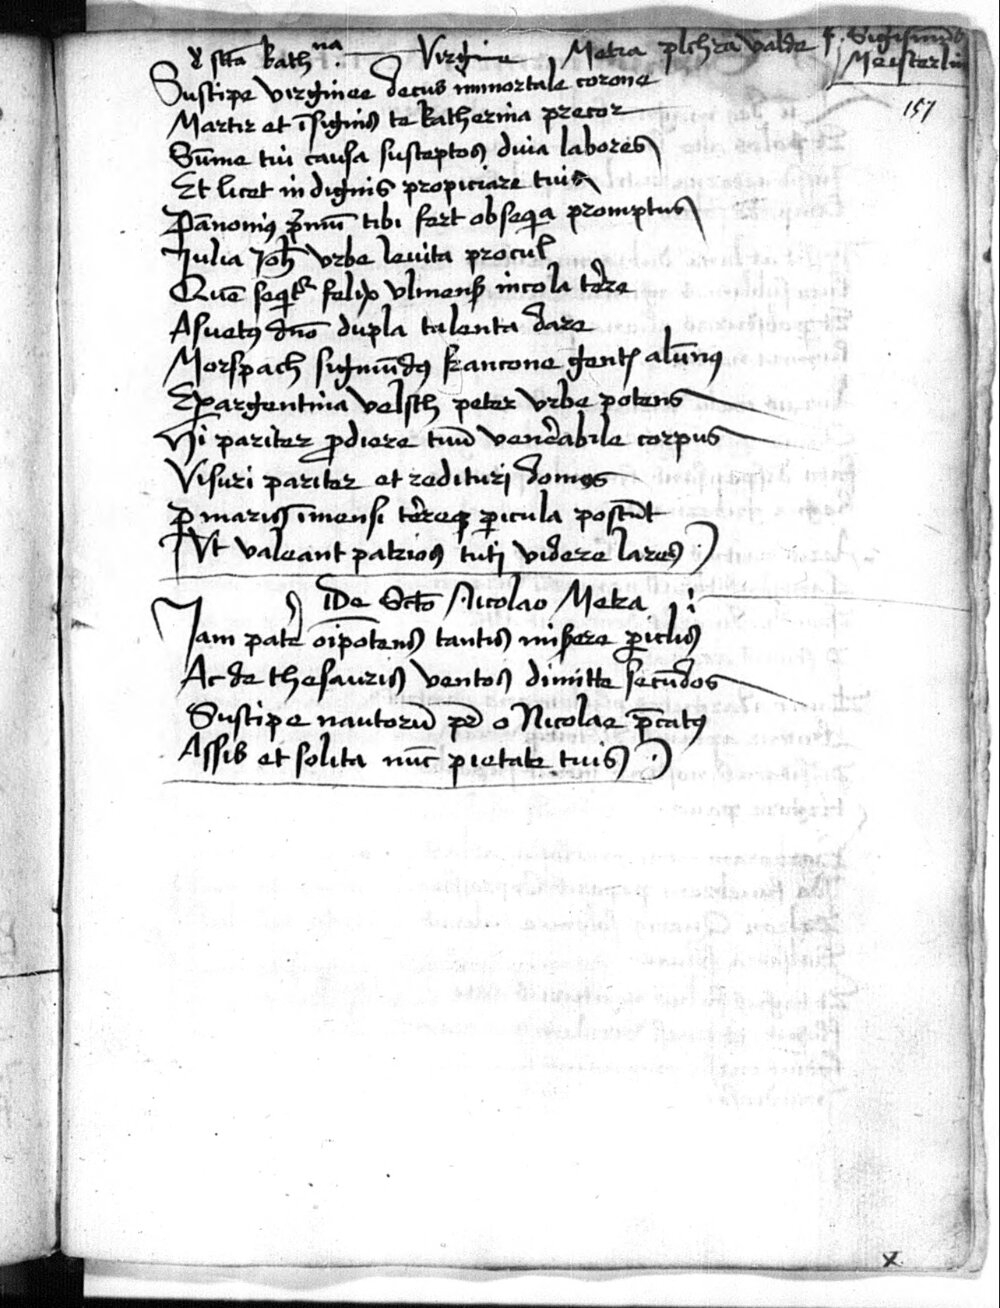 d' sctā kath na. Virgine Metra plchra valde f. Sigismūdi
Meisterlin
157
Suscipe virginee decus immortale corone
Martir et īsignis te katherina precor
Sūme tui causa susceptos diuia labores
Et licet indignis propiciare tuis
Pānonius p̄mum tibi fert obseq̄a promptus
Julia Joh̄ vrbe leuita procul
Quē seqit̄ felix vlmens̄ incola t̄re
Asuetus dn̄o dupla talenta dare
Morspach sigmūdus francone gentis alūnus
Ex argentina velsch peter vrbe potens
Hi pariter p̄diere tuū ven̄abile corpus
Visuri pariter et redituri domos
p̄ maris īmensi t̄req̄ p̄icula poscūt
Vt valeant patrios tuti videre lares
De Scto Nicolao Metra
Jam pate oīpotens tantis misere p̄iclis
Ac de thesauris ventos dimitte secūdos
Suscipe nautorū pr̄ o Nicolae p̄catus
Assis et solita nūc pietate tuis
x